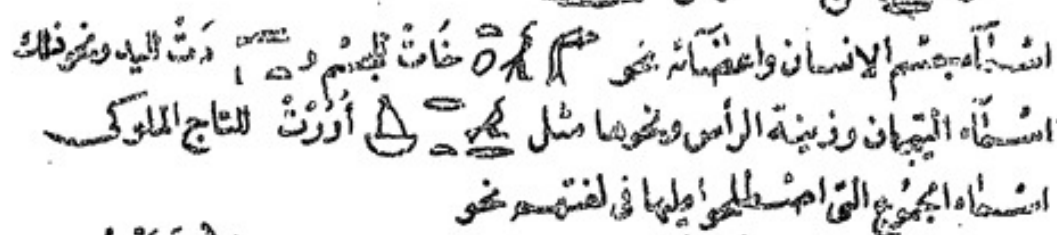 اسماء جسم الانسان واعضائه نحو خات للجسم و دت لليد ونحو ذلك
اسماء التيجان وزينة الرأس ونحوها مثل أُرْرْتْ للتاج الملوكى
اسماء الجموع التى اصطلحوا عليها فى لغتهم نحو